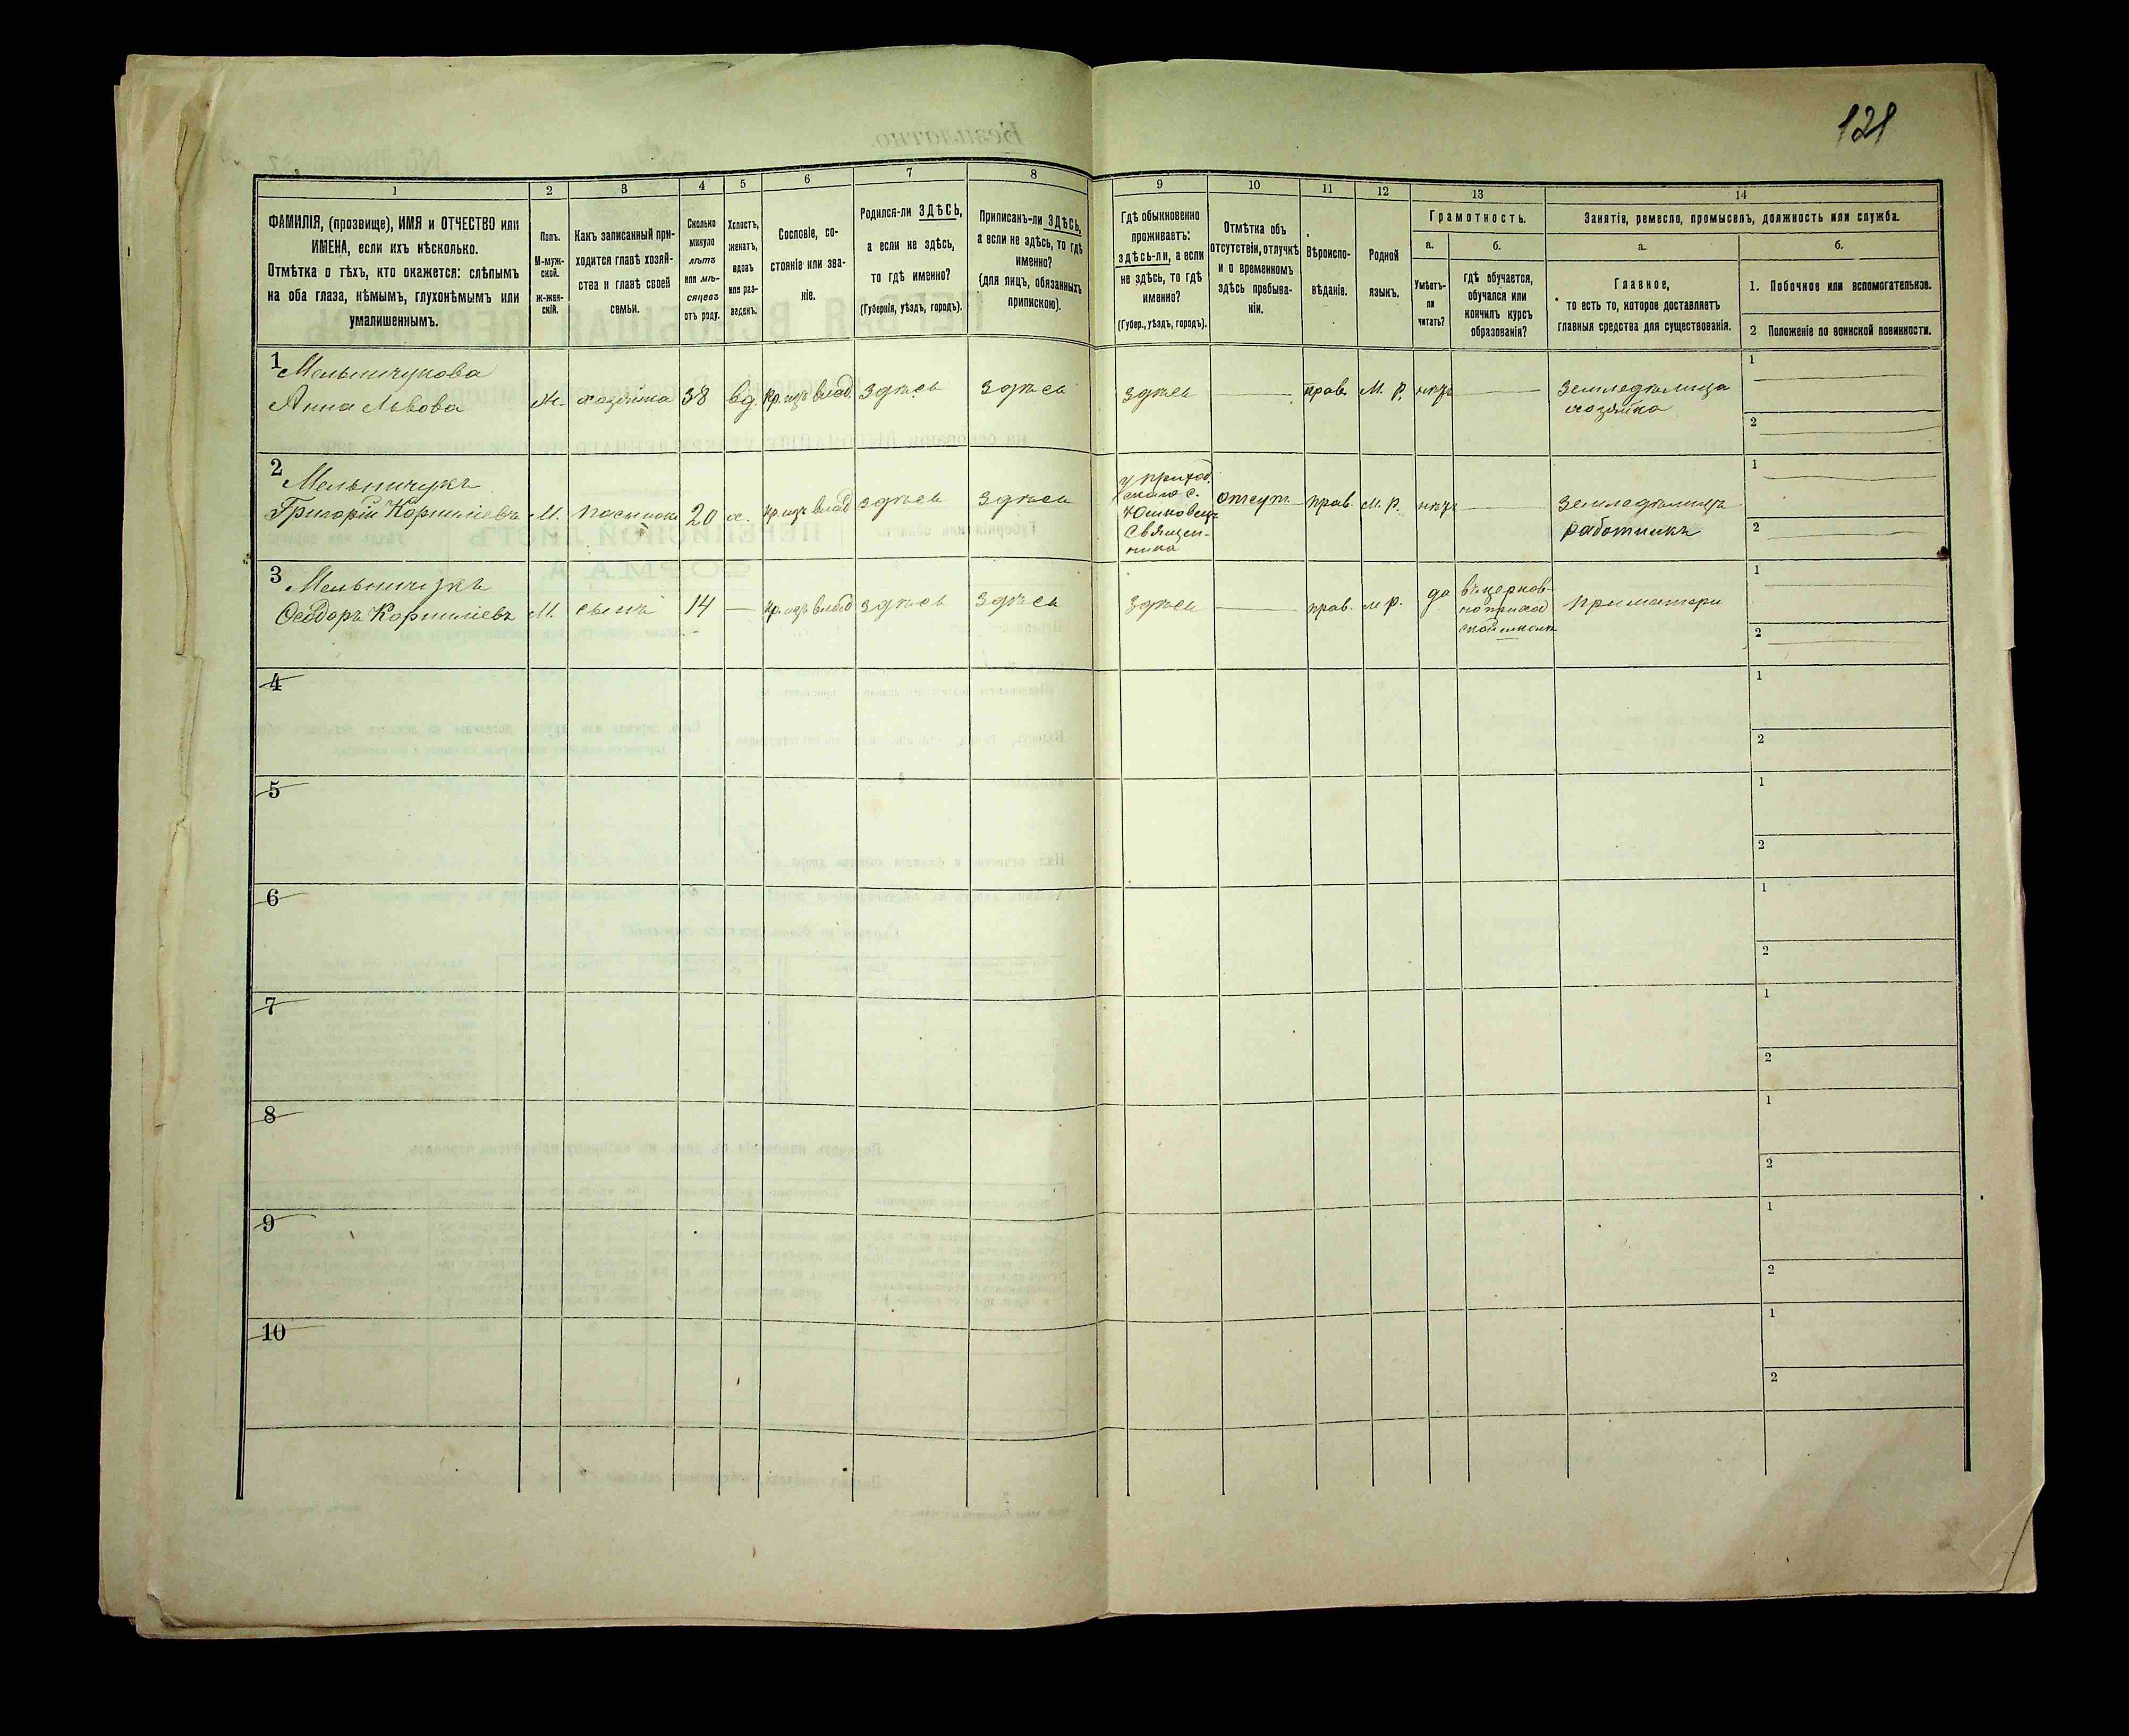 121
1
2
3
4
5
6
7
8
9
10
11
12
13
14
ФАМИЛІЯ, (прозвище), ИМЯ и ОТЧЕСТВО или
ИМЕНА, если ихъ нѣсколько.
Отмѣтка о тѣхъ, кто окажется: слѣпымъ
на оба глаза, нѣмымъ, глухонѣмымъ или
умалишеннымъ.
Полъ.
М-муж-
ской.
ж-жен-
скій.
Какъ записанный при-
ходится главѣ хозяй-
ства и главѣ своей
семьи.
Сколько
минуло
лѣтъ
или мѣ-
сяцевъ
отъ роду.
Холостъ,
женатъ,
вдовъ
или раз-
веденъ.
Сословіе, со-
стояніе или зва-
ніе.
Родился-ли ЗДѢСЬ,
а если не здѣсь,
то гдѣ именно?
(Губернія, уѣздъ, городъ).
Приписанъ-ли ЗДѢСЬ,
а если не здѣсь, то гдѣ
именно?
(для лицъ, обязанныхъ
припискою).
Гдѣ обыкновенно
проживаетъ:
здѣсь-ли, а если
не здѣсь, то гдѣ
именно?
(Губер., уѣздъ, городъ).
Отмѣтка объ
отсутствіи, отлучкѣ
и о временномъ
здѣсь пребыва-
ніи.
Вѣроиспо-
вѣданіе.
Родной
языкъ.
Грамотность.
а.
Умѣетъ-
ли
читать?
б.
гдѣ обучается,
обучался или
кончилъ курсъ
образованія?
Занятія, ремесло, промыселъ, должность или служба.
а.
Главное,
то есть то, которое доставляетъ
главныя средства для существованія.
б.
1. Побочное или вспомогательное.
2 Положеніе по воинской повинности.
1 Мельничукова
Анна Львова
Ж.
хозяйка
38
вд.
кр. изъ влад.
здѣсь
здѣсь
здѣсь
прав.
М. р.
нѣтъ
земледѣлица
хозяйка
1
2
2 Мельничукъ
Григорій Корниліевъ
М.
пасынокъ
20
х.
кр. изъ влад
здѣсь
здѣсь
у приход
скаго с.
Юшковецъ
Священ-
ника
отсут.
прав.
м. р.
нѣтъ
земледѣлецъ
работникъ
1
2
3 Мельничукъ
Ѳеодоръ Корниліевъ
М.
сынъ
14
кр. изъ влад
здѣсь
здѣсь
здѣсь
прав.
м р.
да
въ церков-
но приход
ской школѣ
при матери
1
2
4
1
2
5
1
2
6
1
2
7
1
2
8
1
2
9
1
2
10
1
2